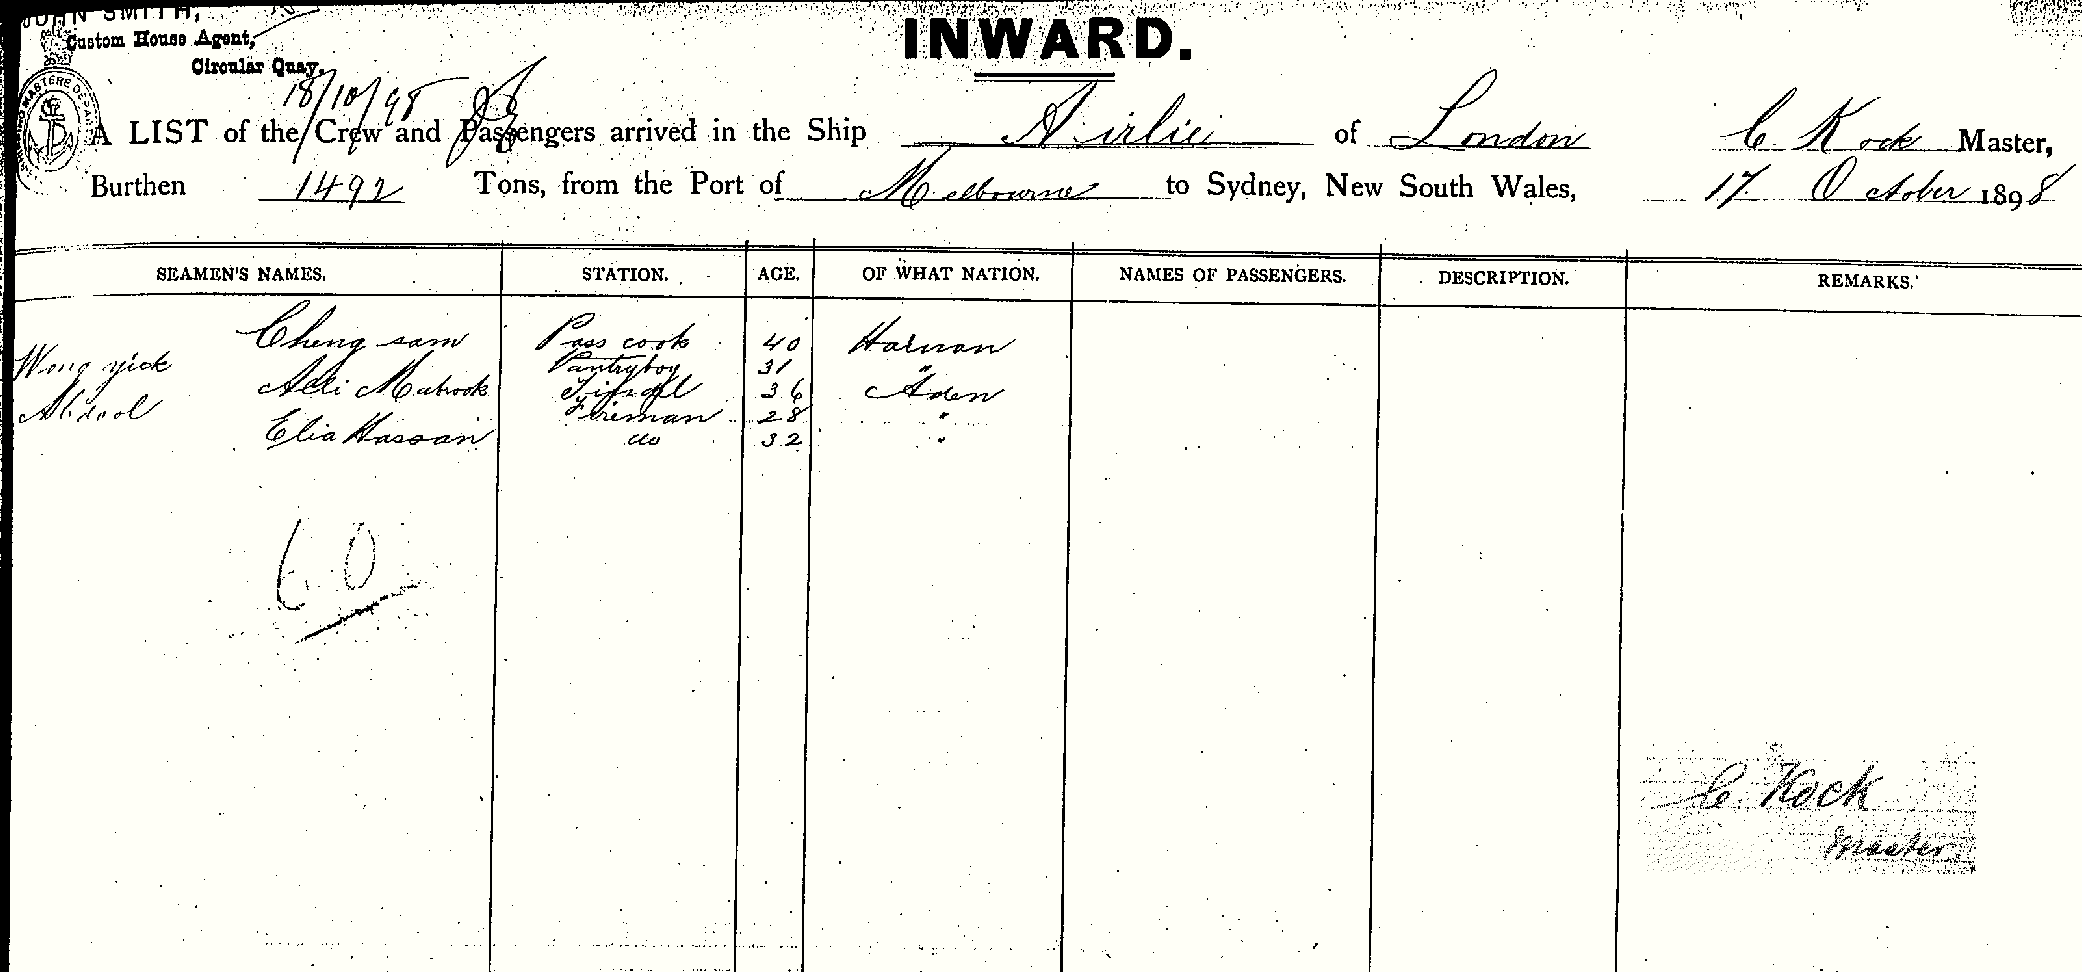 JOHN SMITH,
Custom House Agent,
Circular Quay.
INWARD.
18/10/98
A LIST of the Crew and Passengers arrived in the Ship Airlie of London C Kock Master,
Burthen 1492 Tons, from the Port of Melbourne to Sydney, New South Wales, 17 October 1898
SEAMEN'S NAMES. STATION. AGE. OF WHAT NATION. NAMES OF PASSENGERS. DESCRIPTION. REMARKS.
Cheng sam Pass cook 40 Hainan
Wong yick Pantryboy 31 "
Alli Mabrook 36 Aden
Abdool Fireman 28 "
Elia Hassan do 32 "
60
C. Kock
Master